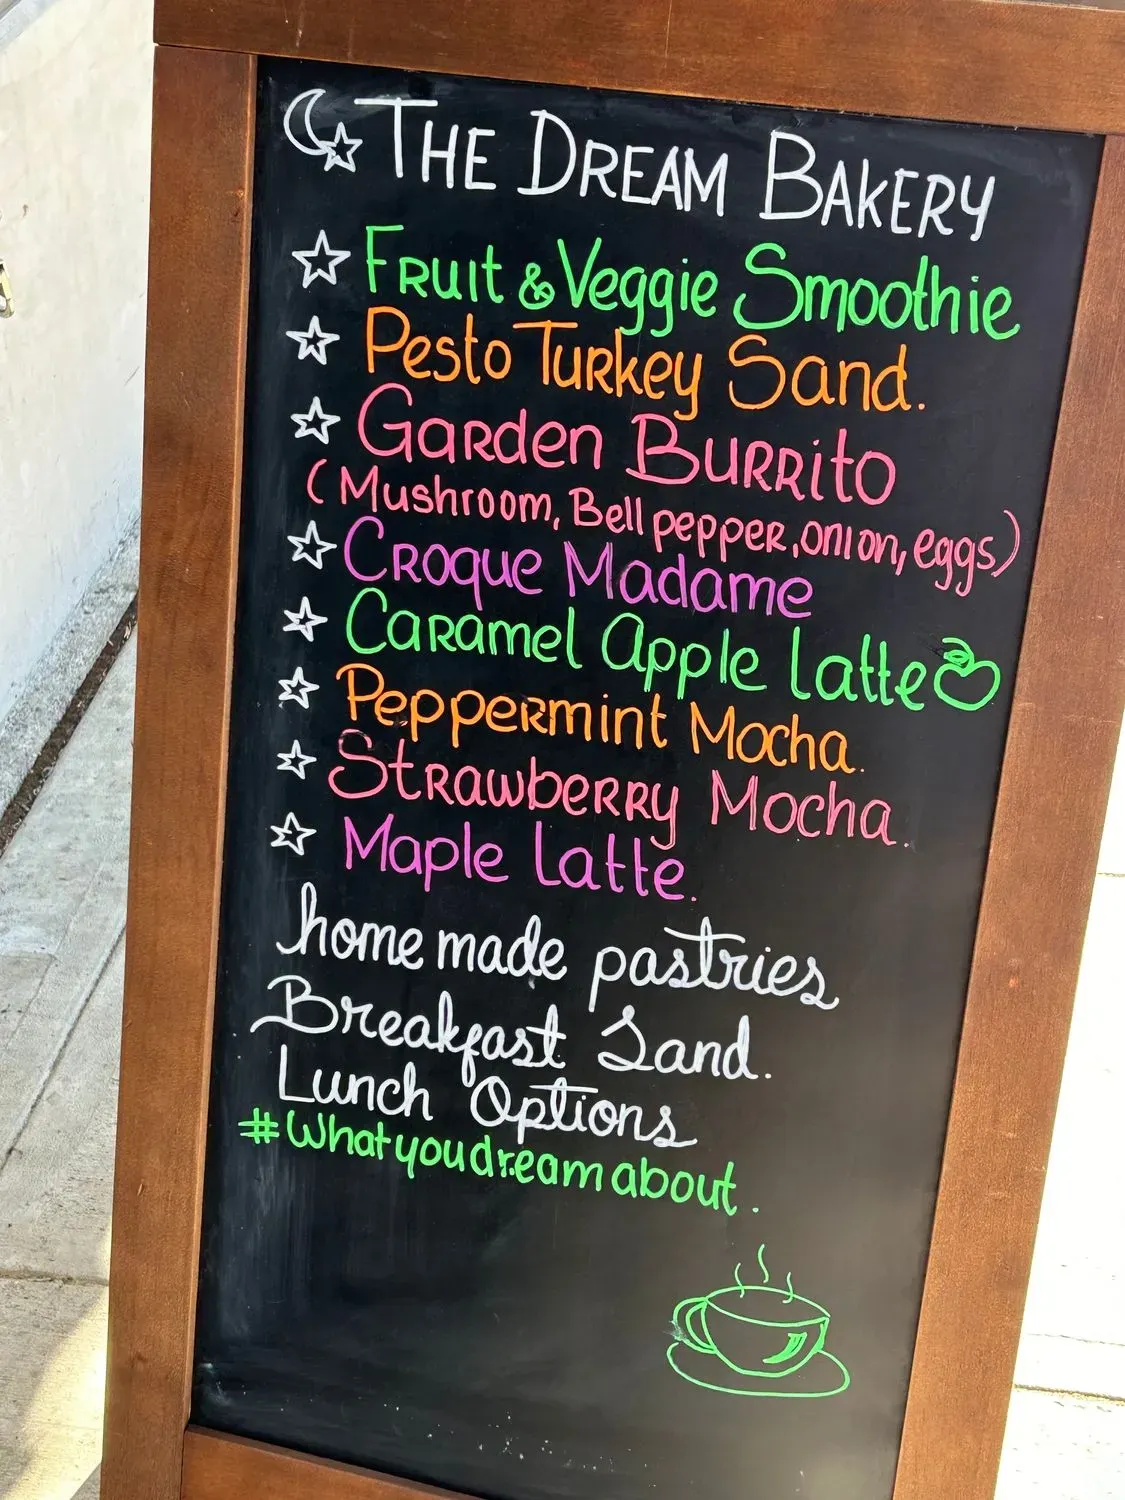 THE DREAM BAKERY
Fruit & Veggie Smoothie
Pesto Turkey Sand.
Garden Burrito
(Mushroom, Bell pepper, onion, eggs)
Croque Madame
Caramel Apple Latte
Peppermint Mocha.
Strawberry Mocha.
Maple Latte.
home made pastries
Breakfast Sand.
Lunch Options
#Whatyoudreamabout.